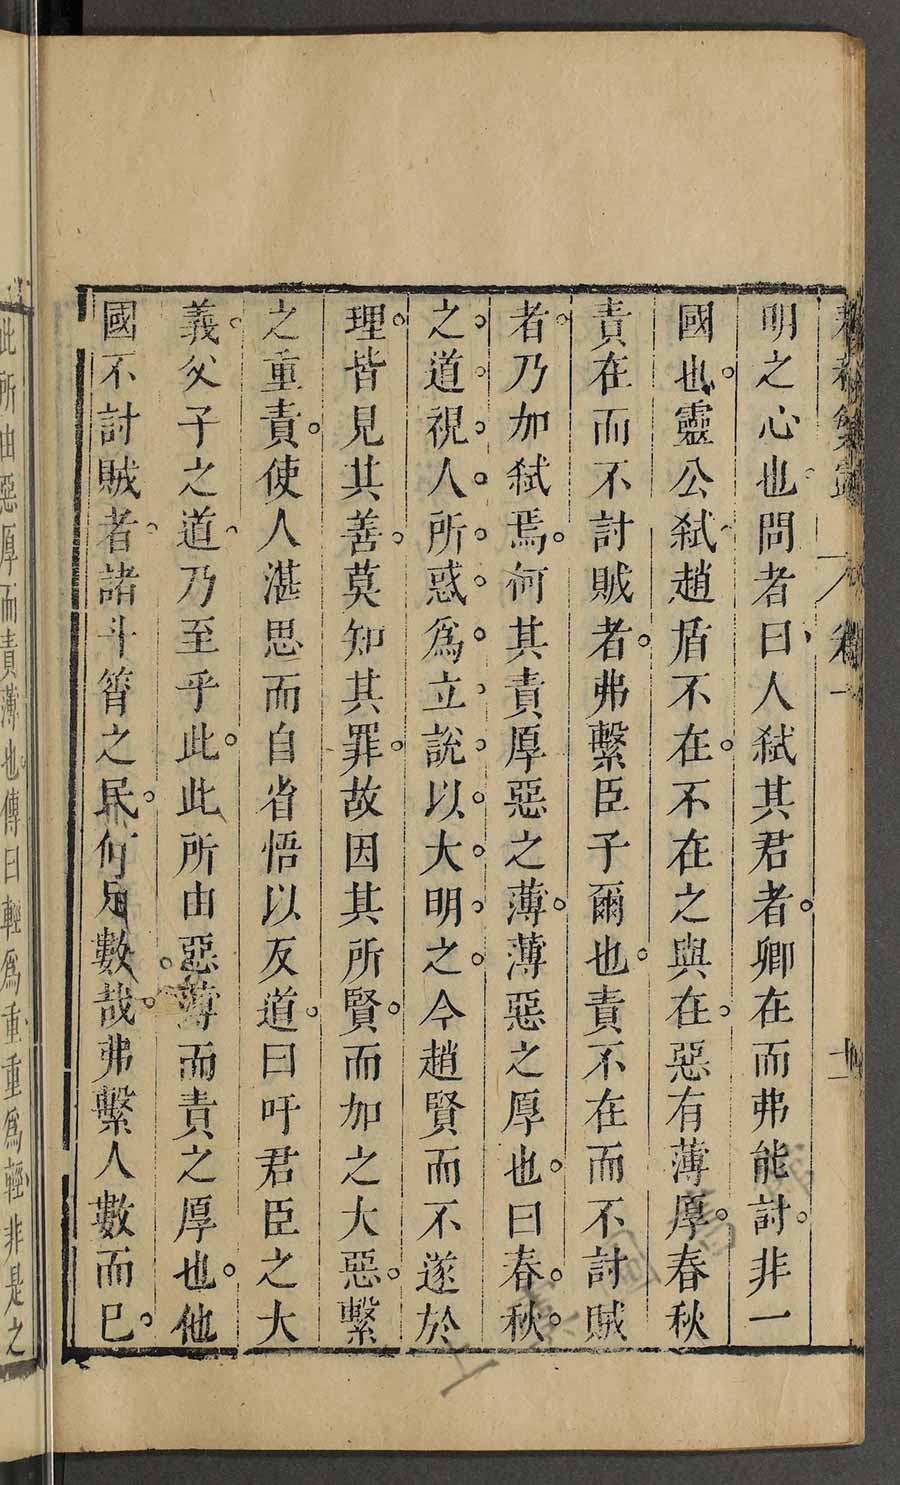 春秋繁露 卷一 十一
明之心也問者曰人弑其君者卿在而弗能討非一
國也靈公弑趙盾不在不在之與在惡有薄厚春秋
責在而不討賊者弗繫臣子爾也責不在而不討賊
者乃加弑焉何其責厚惡之薄薄惡之厚也曰春秋
之道視人所惑爲立說以大明之今趙賢而不遂於
理皆見其善莫知其罪故因其所賢而加之大惡繫
之重責使人湛思而自省悟以反道曰吁君臣之大
義父子之道乃至乎此此所由惡薄而責之厚也他
國不討賊者諸斗筲之民何足數哉弗繫人數而已
此所由惡厚而責薄也傳曰輕爲重重爲輕非是之